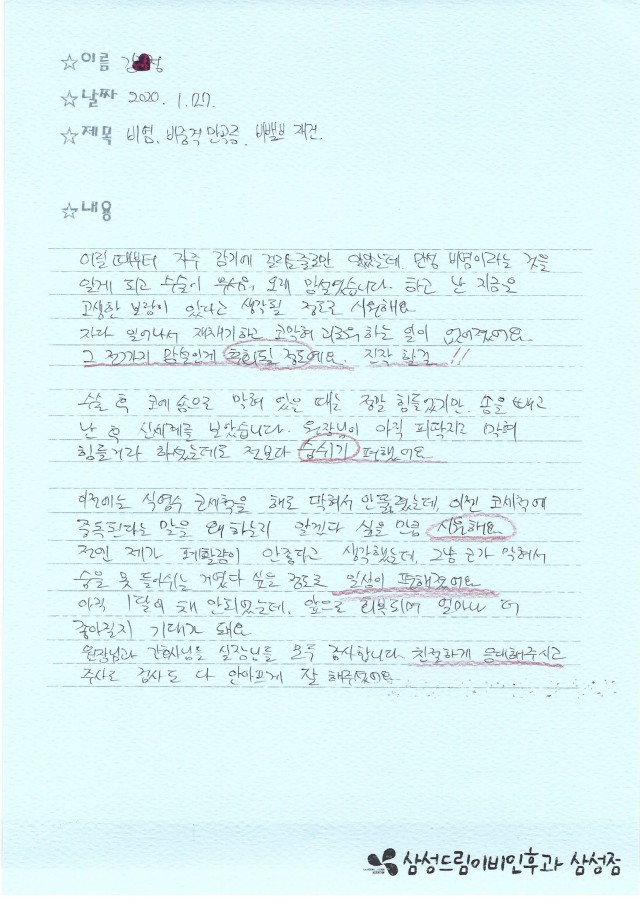 ☆이름 김 정
☆날짜 2020. 1. 27.
☆제목 비염, 비중격만곡증, 비밸브 재건.
☆내용
어릴 때부터 자주 감기에 걸리는줄로만 알았는데 만성 비염이라는 것을
알게 되고 수술이 무서워 오래 망설였습니다. 하고 난 지금은
고생한 보람이 있다고 생각될 정도로 시원해요
자다 일어나서 재채기하고 코막혀 괴로워하는 일이 없어졌어요
그 전까지 망설인게 후회될 정도예요. 진작 할걸!!
수술 후 코에 솜으로 막혀 있을 때는 정말 힘들었지만, 솜을 빼고
난 후 신세계를 보았습니다. 원장님이 아직 피딱지로 막혀
힘들거라 하셨는데도 전보다 숨쉬기 편했어요
이전에는 식염수 코세척을 해도 막혀서 안뚫렸는데, 이젠 코세척에
중독된다는 말을 왜 하는지 알겠다 싶을 만큼 시원해요
전엔 제가 폐활량이 안좋다고 생각했는데, 그냥 코가 막혀서
숨을 못 들이쉬는 거였다 싶을 정도로 일상이 편해졌어요
아직 1달이 채 안되었는데, 앞으로 회복되며 얼마나 더
좋아질지 기대가 돼요
원장님과 간호사님들 실장님들 모두 감사합니다 친절하게 응대해주시고
주사도 검사도 다 안아프게 잘 해주셨어요
삼성드림이비인후과 삼성점